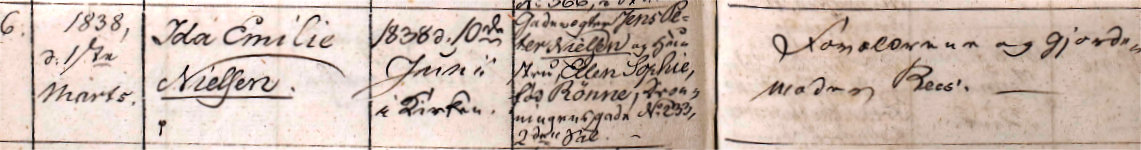 6.
1838,
d. 1ste
Marts.
Ida Emilie
Nielsen.
1838 d. 10de
Junii
i Kirken.
Gadevægter Jens Pe-
ter Nielsen og Hustru
Ellen Sophie,
fød Rönne, Dron-
ningensgade No 233,
2den Sal.
Forældrene og Gjorde-
moder Rees.